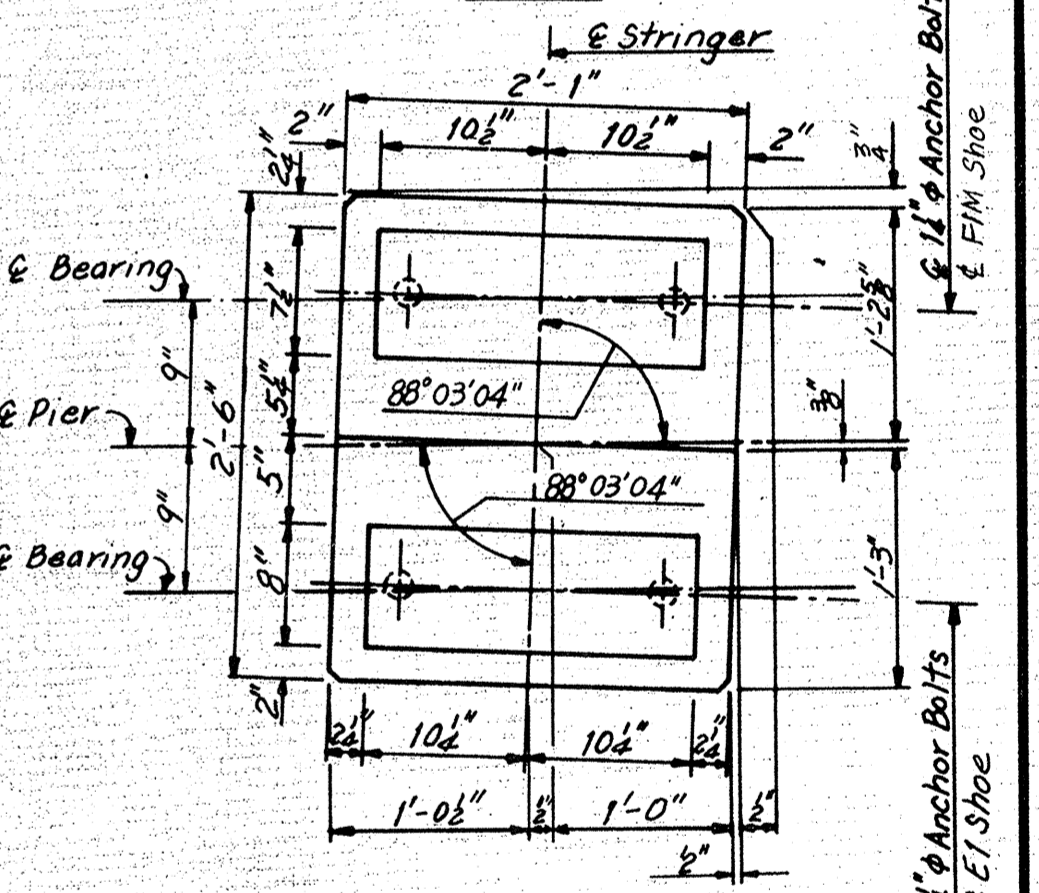 ℄ Stringer
2'-1"
2"
10½"
10½"
2"
¾"
2¼"
℄ 1¼" ϕ Anchor Bolt
℄ F1M Shoe
℄ Bearing
7½"
1'-2⅝"
9"
88°03'04"
5¼"
⅜"
℄ Pier
2'-6"
5"
88°03'04"
9"
℄ Bearing
8"
1'-3"
2"
2¼"
10¼"
10¼"
2¼"
1'-0½"
½"
1'-0"
½"
½"
" ϕ Anchor Bolts
E1 Shoe